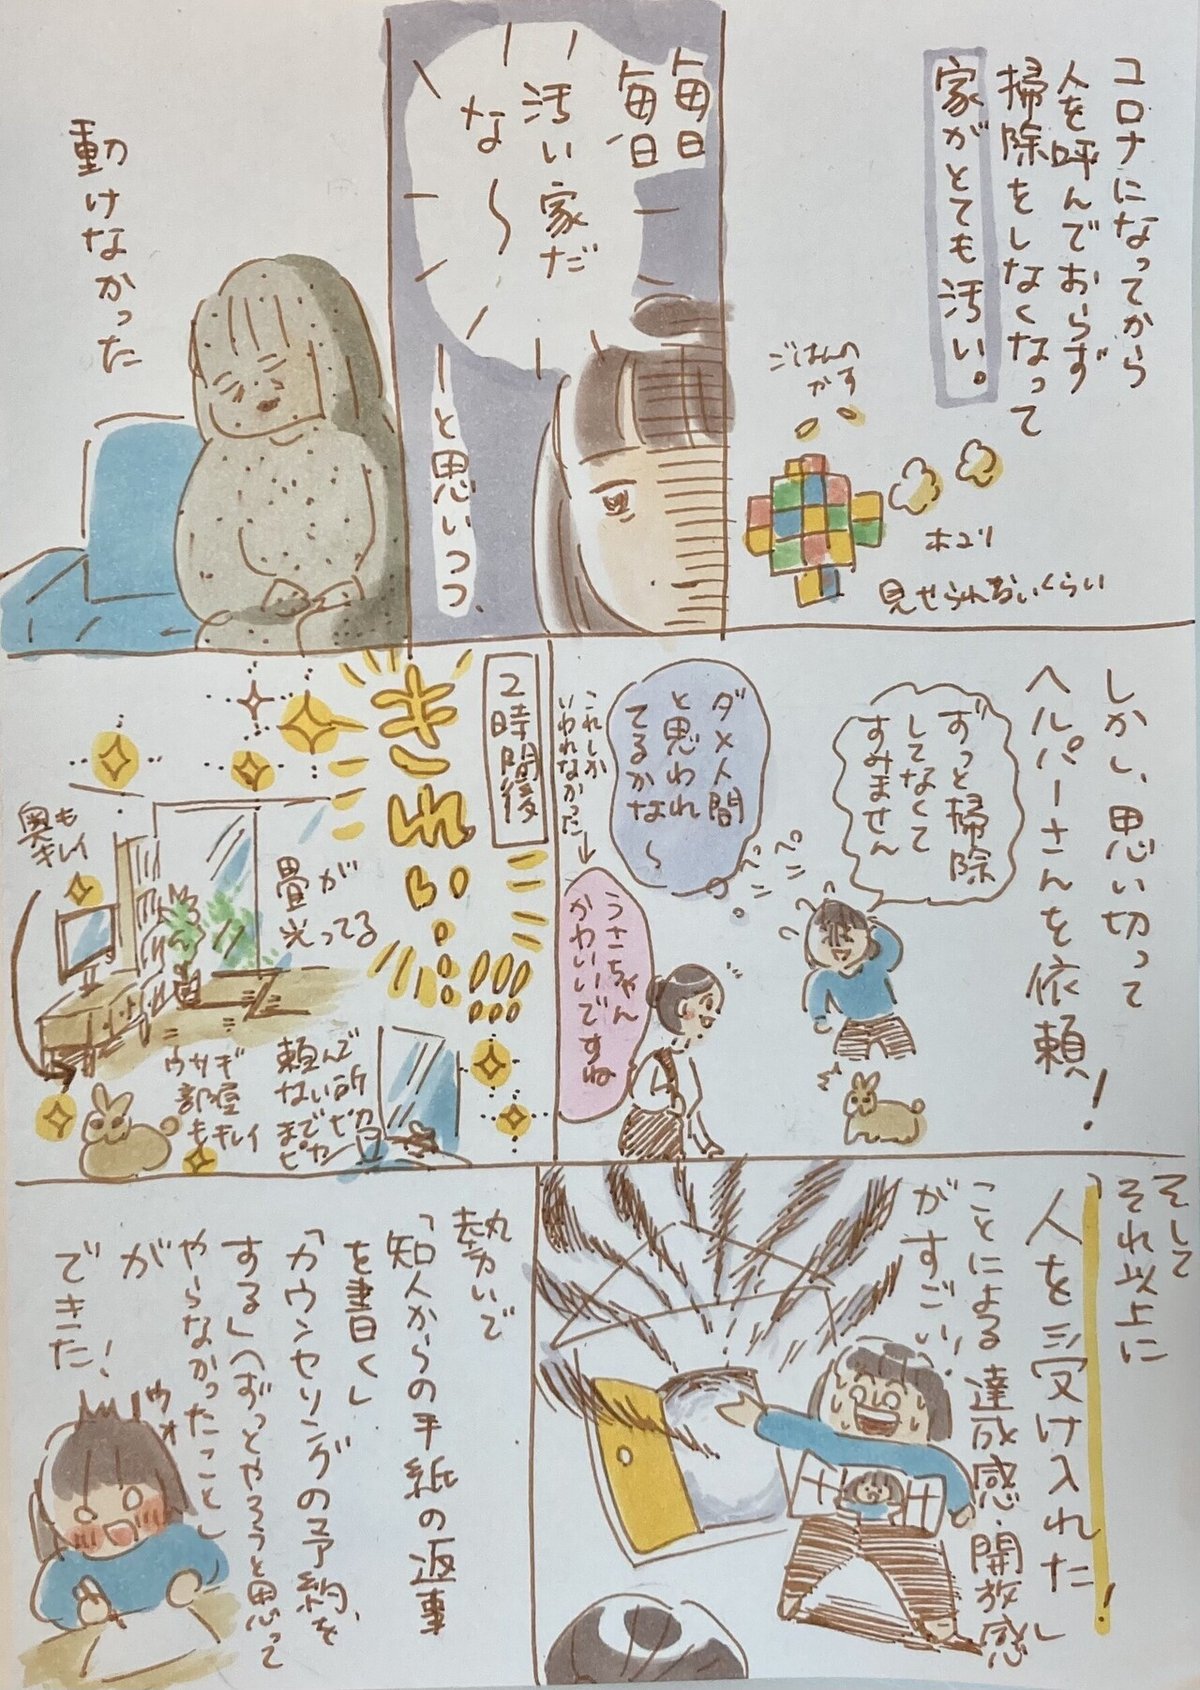 コロナになってから
人を呼んでおらず
掃除をしなくなって
家がとても汚い。
ごはんの
かす
ホコリ
見せられないくらい
毎日
毎日
汚い家だ
な〜
と思いつつ、
動けなかった
しかし、思い切って
ヘルパーさんを依頼！
ずっと掃除
してなくて
すみません
ペコ
ペコ
ダメ人間
と思われ
てるかな〜
これしか
いわれなかった→
うさちゃん
かわいいですね
2時間後
きれい…!!!
畳が
光ってる
奥も
キレイ
ウサギ
部屋
もキレイ
頼んで
ない所
までピカ
ピカ
そして
それ以上に
「人を受け入れた」
ことによる達成感・開放感
がすごい！
勢いで
「知人からの手紙の返事
を書く」
「カウンセリングの予約を
する」（ずっとやろうと思って
やらなかったこと）
が
できた！
ウオ